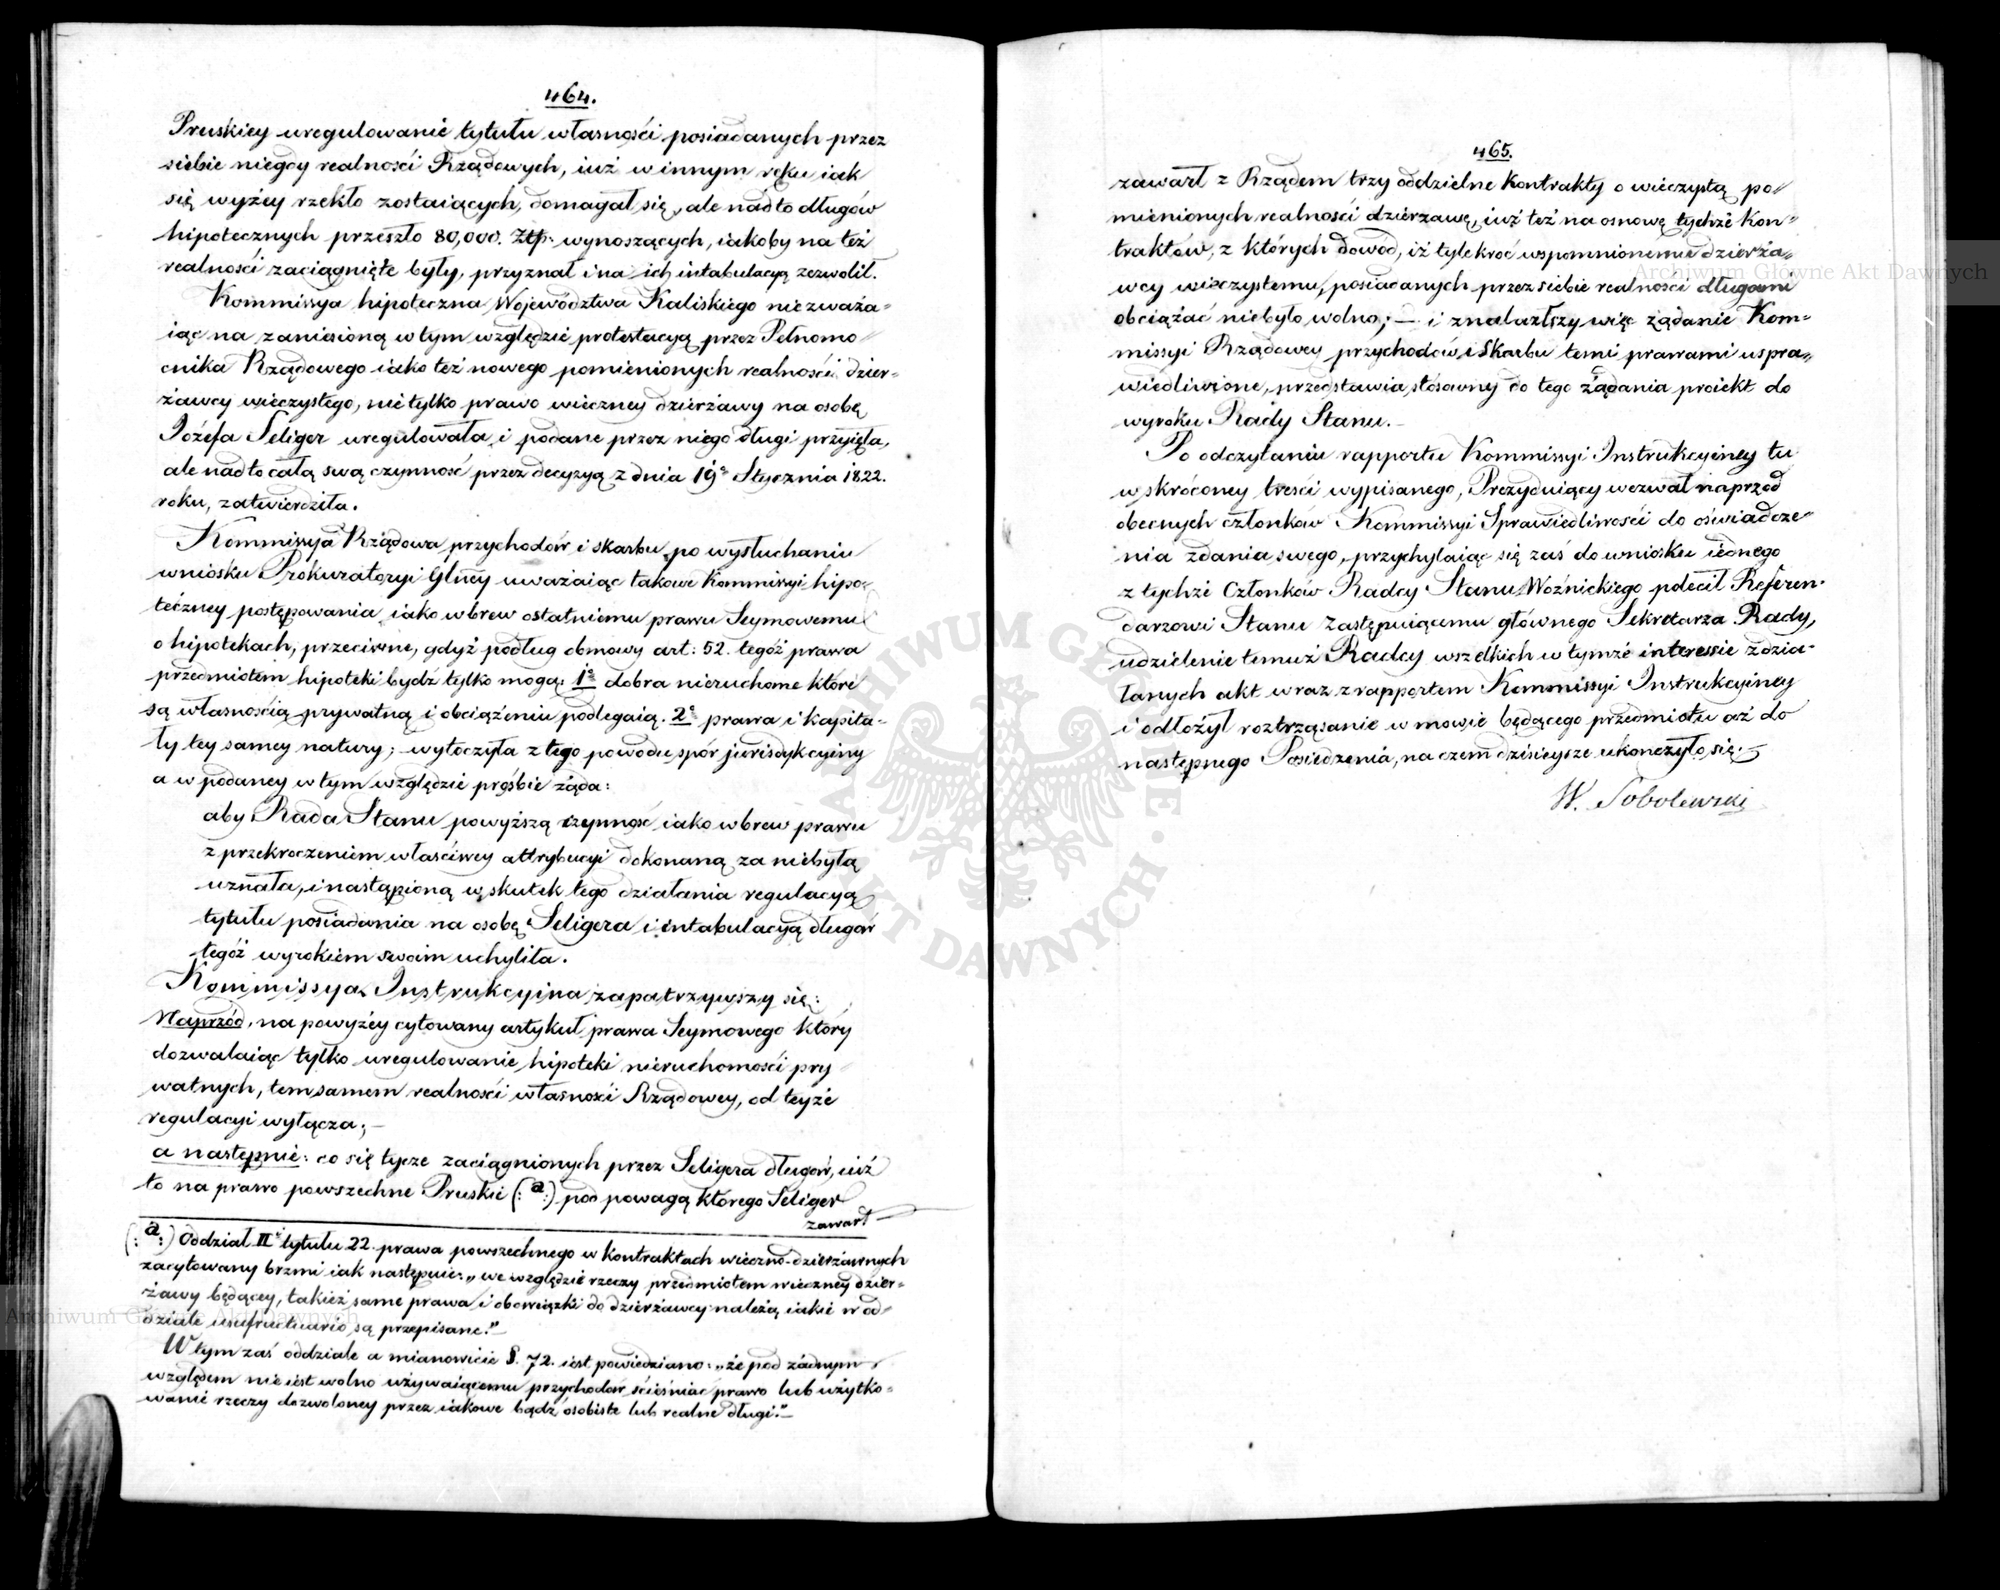 464.
Pruskiey uregulowanie tytułu własności posiadanych przez
siebie niegdy realności Rządowych, iuż w innym ręku iak
się wyżey rzekło zostaiących, domagał się, ale nadto długów
hipotecznych przeszło 80,000. Złp: wynoszących, iakoby na też
realności zaciągnięte były, przyznał i na ich intabulacyą zezwolił.
Kommissya hipoteczna Województwa Kaliskiego niezważa=
iąc na zaniesioną w tym względzie protestacyą przez Pełnomo=
cnika Rządowego iako też nowego pomienionych realności dzier=
żawcy wieczystego, nie tylko prawo wieczney dzierżawy na osobę
Józefa Seliger uregulowała i podane przez niego długi przyięła,
ale nadto całą swą czynność przez decyzyą z dnia 19º Stycznia 1822.
roku, zatwierdziła.
Kommissya Rządowa przychodów i skarbu po wysłuchaniu
wniosku Prokuratoryi Głney uważaiąc takowe Kommissyi hipo=
teczney postępowania iako wbrew ostatniemu prawu Seymowemu
o hipotekach, przeciwne, gdyż podług osnowy art: 52. tegóż prawa
przedmiotem hipoteki bydź tylko mogą: 1º dobra nieruchome które
są własnością prywatną i obciążeniu podlegaią. 2º prawa i kapita=
ły tey samey natury; wytoczyła z tego powodu spór jurisdykcyiny
a w podaney w tym względzie prośbie żąda:
aby Rada Stanu powyższą czynność iako wbrew prawu
z przekroczeniem właściwey attrybucyi dokonaną za niebyłą
uznała, i nastąpioną w skutek tego działania regulacyą
tytułu posiadania na osobę Seligera i intabulacyą długów
tegóż wyrokiem swoim uchyliła.
Kommissya Instrukcyina zapatrzywszy się:
Naprzód, na powyżey cytowany artykuł prawa Seymowego który
dozwalaiąc tylko uregulowanie hipoteki nieruchomości pry
watnych, tem samem realności własności Rządowey, od teyże
regulacyi wyłącza;—
a następnie: co się tycze zaciągnionych przez Seligera długów, iuż
to na prawo powszechne Pruskie (:a:) pod powagą którego Seliger
zawarł
(:a:) Oddział IIº tytułu 22. prawa powszechnego w kontraktach wieczno-dzierżawnych
zacytowany brzmi iak następuie: „we względzie rzeczy przedmiotem wieczney dzier=
żawy będącey, takież same prawa i obowiązki do dzierżawcy należą iakie w od=
dziale usufructuario są przepisane."—
W tym zaś oddziale a mianowicie §. 72. iest powiedziano: „że pod żadnym
względem nie iest wolno używaiącemu przychodów ścieśniać prawo lub użytko=
wanie rzeczy dozwoloney przez iakowe bądź osobiste lub realne długi."—
465.
zawarł z Rządem trzy oddzielne kontrakty o wieczystą po=
mienionych realności dzierżawę, iuż też na osnowę tychże kon=
traktów, z których dowód, iż tylekroć wspomnionemu dzierża=
wcy wieczystemu, posiadanych przez siebie realności długami
obciążać niebyło wolno;— i znalazłszy więc żądanie Kom=
missyi Rządowey przychodów i Skarbu temi prawami uspra=
wiedliwione, przedstawia stósowny do tego żądania proiekt do
wyroku Rady Stanu.—
Po odczytaniu rapportu Kommissyi Instrukcyiney tu
w skróconey treści wypisanego, Prezyduiący wezwał naprzód
obecnych członków Kommissyi Sprawiedliwości do oświadcze=
nia zdania swego, przychylaiąc się zaś do wniosku iednego
z tychże Członków Radcy Stanu Woźnickiego polecił Referen=
darzowi Stanu Zastępuiącemu głównego Sekretarza Rady,
udzielenie temuż Radcy wszelkich w tymże interessie zdzia=
łanych akt wraz z rapportem Kommissyi Instrukcyiney
i odłożył roztrząsanie w mowie będącego przedmiotu aż do
następnego Posiedzenia, na czem dzisieysze ukonczyło się.—
W. Sobolewski
Archiwum Główne Akt Dawnych
Archiwum Główne Akt Dawnych
ARCHIWUM GŁÓWNE AKT DAWNYCH